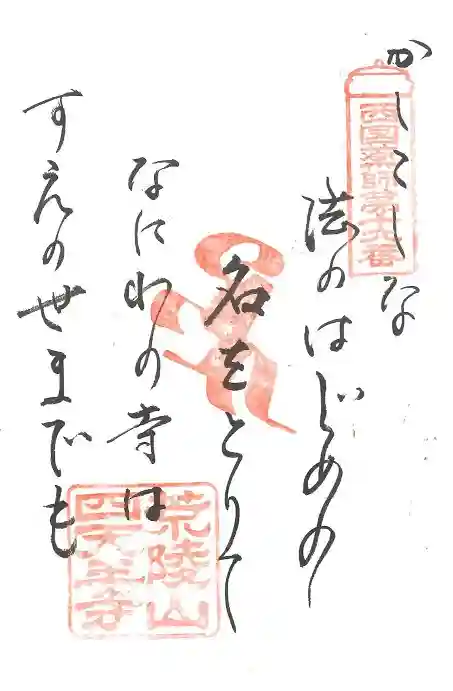 西国薬師第十六番
かしこしな
法のはじめの
名をとりて
なにわの寺は
すえのせまでも
荒陵山
四天王寺